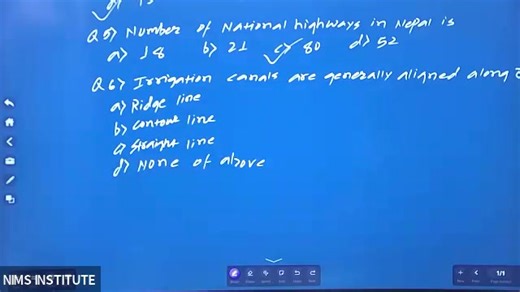 Q 5> Number of National highways in Nepal is
a> 18 b> 21 c> 80 d> 52
Q 6> Irrigation canals are generally aligned along
a> Ridge line
b> contour line
c> straight line
d> None of above
1/1
NIMS INSTITUTE